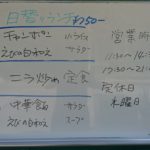 日替ランチ ¥750-
チャンポン ハーフライス
えびの白和え サラダ
ニラ炒め定食
中華飯 サラダ
えびの白和え スープ
営業時
11:30~14:
17:30~21:
定休日
木曜日